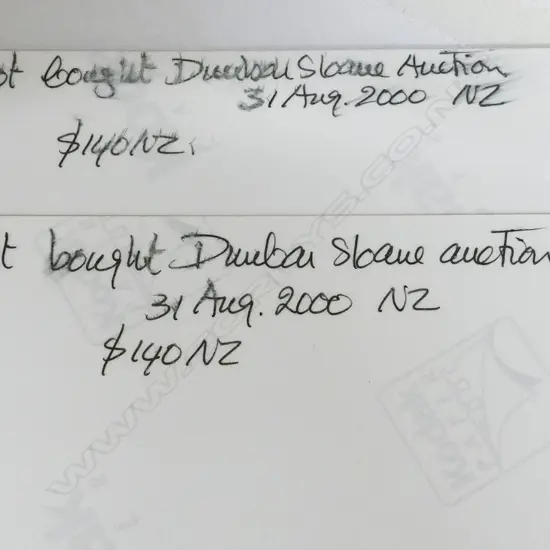 bought Dunbar Sloane Auction
31 Aug. 2000 NZ
$140NZ.
bought Dunbar Sloane auction
31 Aug. 2000 NZ
$140NZ
Kodak